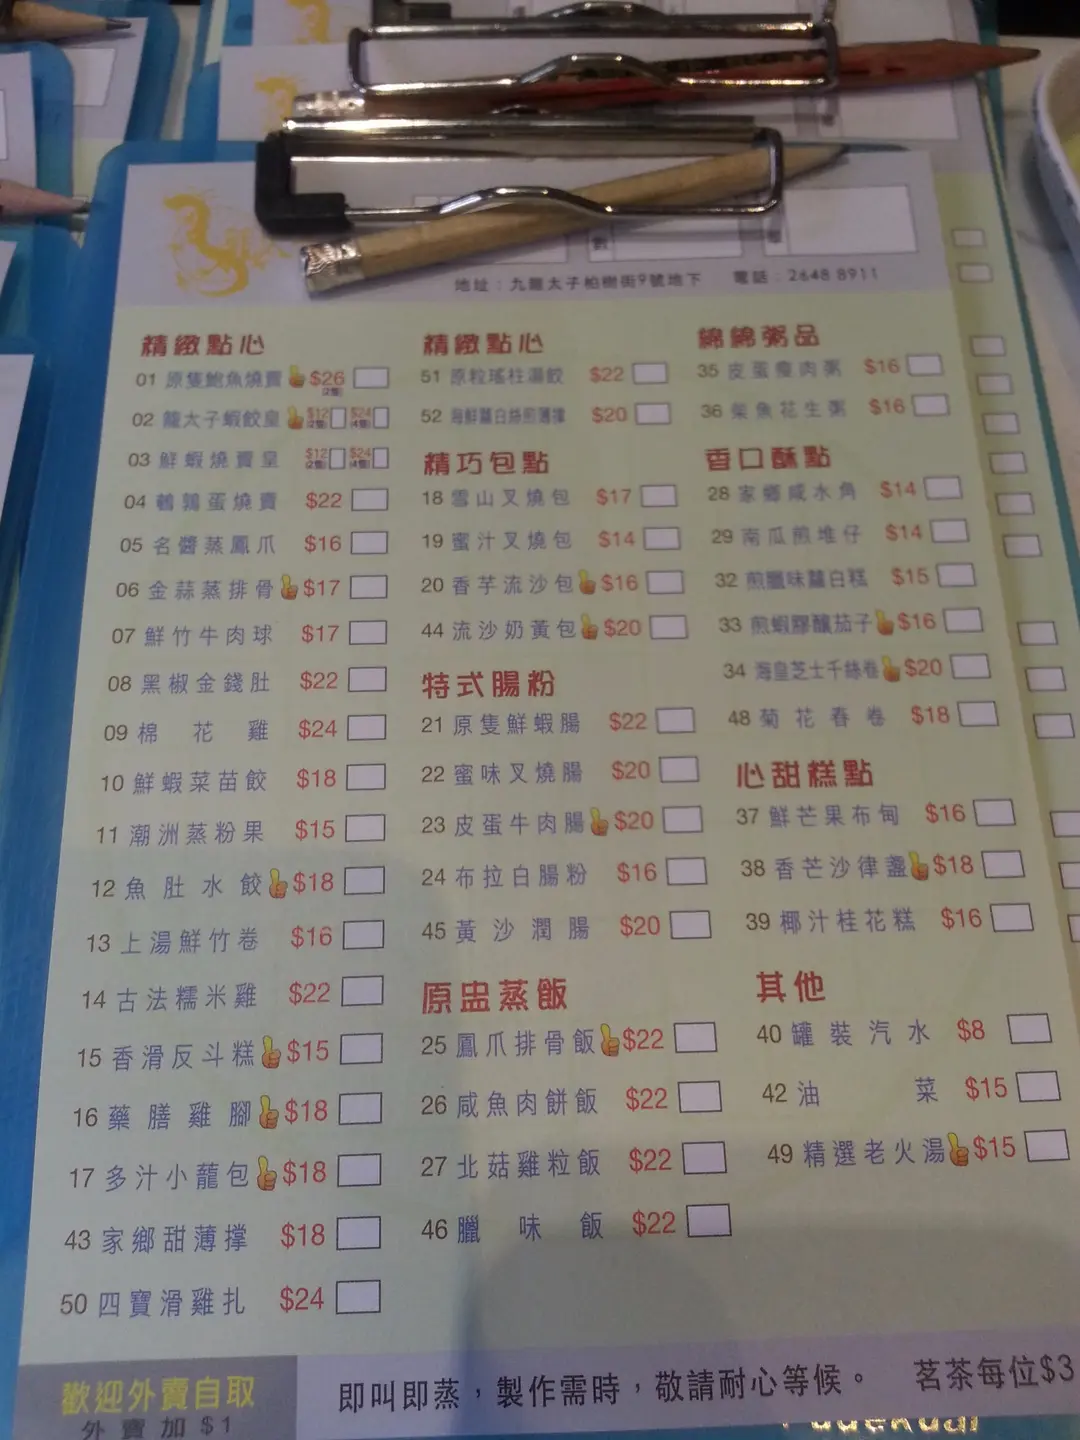 地址：九龍太子柏樹街9號地下 電話：2648 8911
精緻點心
01 原隻鮑魚燒賣 $26 (2隻)
02 龍太子蝦餃皇 $12 (2隻) $24 (4隻)
03 鮮蝦燒賣皇 $12 (2隻) $24 (4隻)
04 鵪鶉蛋燒賣 $22
05 名醬蒸鳳爪 $16
06 金蒜蒸排骨 $17
07 鮮竹牛肉球 $17
08 黑椒金錢肚 $22
09 棉花雞 $24
10 鮮蝦菜苗餃 $18
11 潮洲蒸粉果 $15
12 魚肚水餃 $18
13 上湯鮮竹卷 $16
14 古法糯米雞 $22
15 香滑反斗糕 $15
16 藥膳雞腳 $18
17 多汁小蘢包 $18
43 家鄉甜薄撑 $18
50 四寶滑雞扎 $24
精緻點心
51 原粒瑤柱湯餃 $22
52 海鮮蘿白絲煎薄撑 $20
精巧包點
18 雪山叉燒包 $17
19 蜜汁叉燒包 $14
20 香芋流沙包 $16
44 流沙奶黃包 $20
特式腸粉
21 原隻鮮蝦腸 $22
22 蜜味叉燒腸 $20
23 皮蛋牛肉腸 $20
24 布拉白腸粉 $16
45 黃沙潤腸 $20
原盅蒸飯
25 鳳爪排骨飯 $22
26 咸魚肉餅飯 $22
27 北菇雞粒飯 $22
46 臘味飯 $22
綿綿粥品
35 皮蛋瘦肉粥 $16
36 柴魚花生粥 $16
香口酥點
28 家鄉咸水角 $14
29 南瓜煎堆仔 $14
32 煎臘味蘿白糕 $15
33 煎蝦膠釀茄子 $16
34 海皇芝士千絲卷 $20
48 菊花春卷 $18
心甜糕點
37 鮮芒果布甸 $16
38 香芒沙律盞 $18
39 椰汁桂花糕 $16
其他
40 罐裝汽水 $8
42 油菜 $15
49 精選老火湯 $15
歡迎外賣自取
外賣加 $1
即叫即蒸，製作需時，敬請耐心等候。 茗茶每位$3